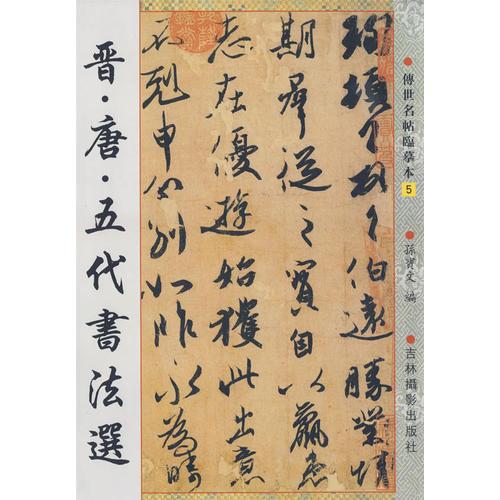 晋·唐·五代書法選
珣頓首頓首伯遠勝業情
期群從之寶自以羸患
志在優遊始獲此出意
不剋申分別如昨永為疇
傳世名帖臨摹本
5
孫寶文 編
吉林攝影出版社